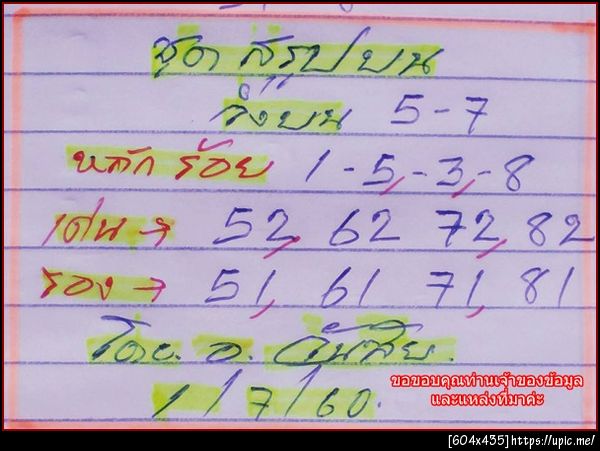 ชุด สรุปบน
วิ่งบน 5-7
หลักร้อย 1-5,-3,-8
เด่น→ 52, 62 72, 82
รอง→ 51, 61 71, 81
โดย. อ.
1/7/60.
ขอขอบคุณท่านเจ้าของข้อมูล
และแหล่งที่มาค่ะ
[604x435]https://upic.me/